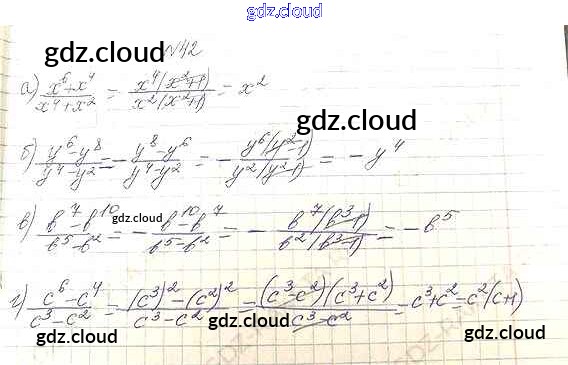 gdz.cloud
№42
gdz.cloud
а) (x^6+x^4)/(x^4+x^2) = (x^4(x^2+1))/(x^2(x^2+1)) = x^2
gdz.cloud
gdz.cloud
б) (y^6-y^8)/(y^4-y^2) = -(y^8-y^6)/(y^4-y^2) = -(y^6(y^2-1))/(y^2(y^2-1)) = -y^4
gdz.cloud
в) (b^7-b^10)/(b^5-b^2) = -(b^10-b^7)/(b^5-b^2) = -(b^7(b^3-1))/(b^2(b^3-1)) = -b^5
г) (c^6-c^4)/(c^3-c^2) = ((c^3)^2-(c^2)^2)/(c^3-c^2) = ((c^3-c^2)(c^3+c^2))/(c^3-c^2) = c^3+c^2 = c^2(c+1)
gdz.cloud
gdz.cloud